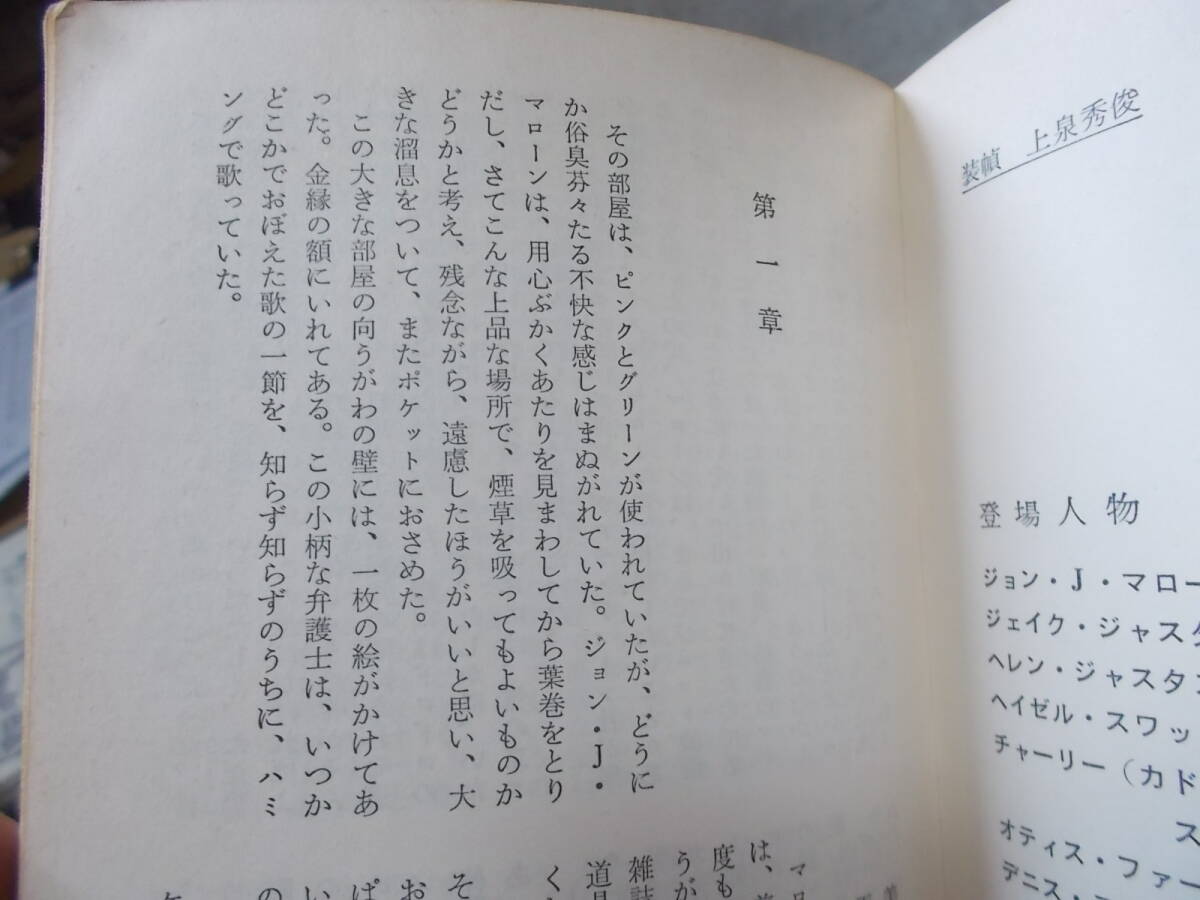 装幀 上泉秀俊
登場人物
ジョン・J・マロー
ジェイク・ジャスタ
ヘレン・ジャスタ
ヘイゼル・スワッ
チャーリー（カド
ス
オティス・ファー
デニス・
第一章
その部屋は、ピンクとグリーンが使われていたが、どうに
か俗臭芬々たる不快な感じはまぬがれていた。ジョン・J・
マローンは、用心ぶかくあたりを見まわしてから葉巻をとり
だし、さてこんな上品な場所で、煙草を吸ってもよいものか
どうかと考え、残念ながら、遠慮したほうがいいと思い、大
きな溜息をついて、またポケットにおさめた。
この大きな部屋の向うがわの壁には、一枚の絵がかけてあ
った。金縁の額にいれてある。この小柄な弁護士は、いつか
どこかでおぼえた歌の一節を、知らず知らずのうちに、ハミ
ングで歌っていた。
マロ
は、
度も
うが
雑誌
道具
く
そ
お
ぱ
い
の